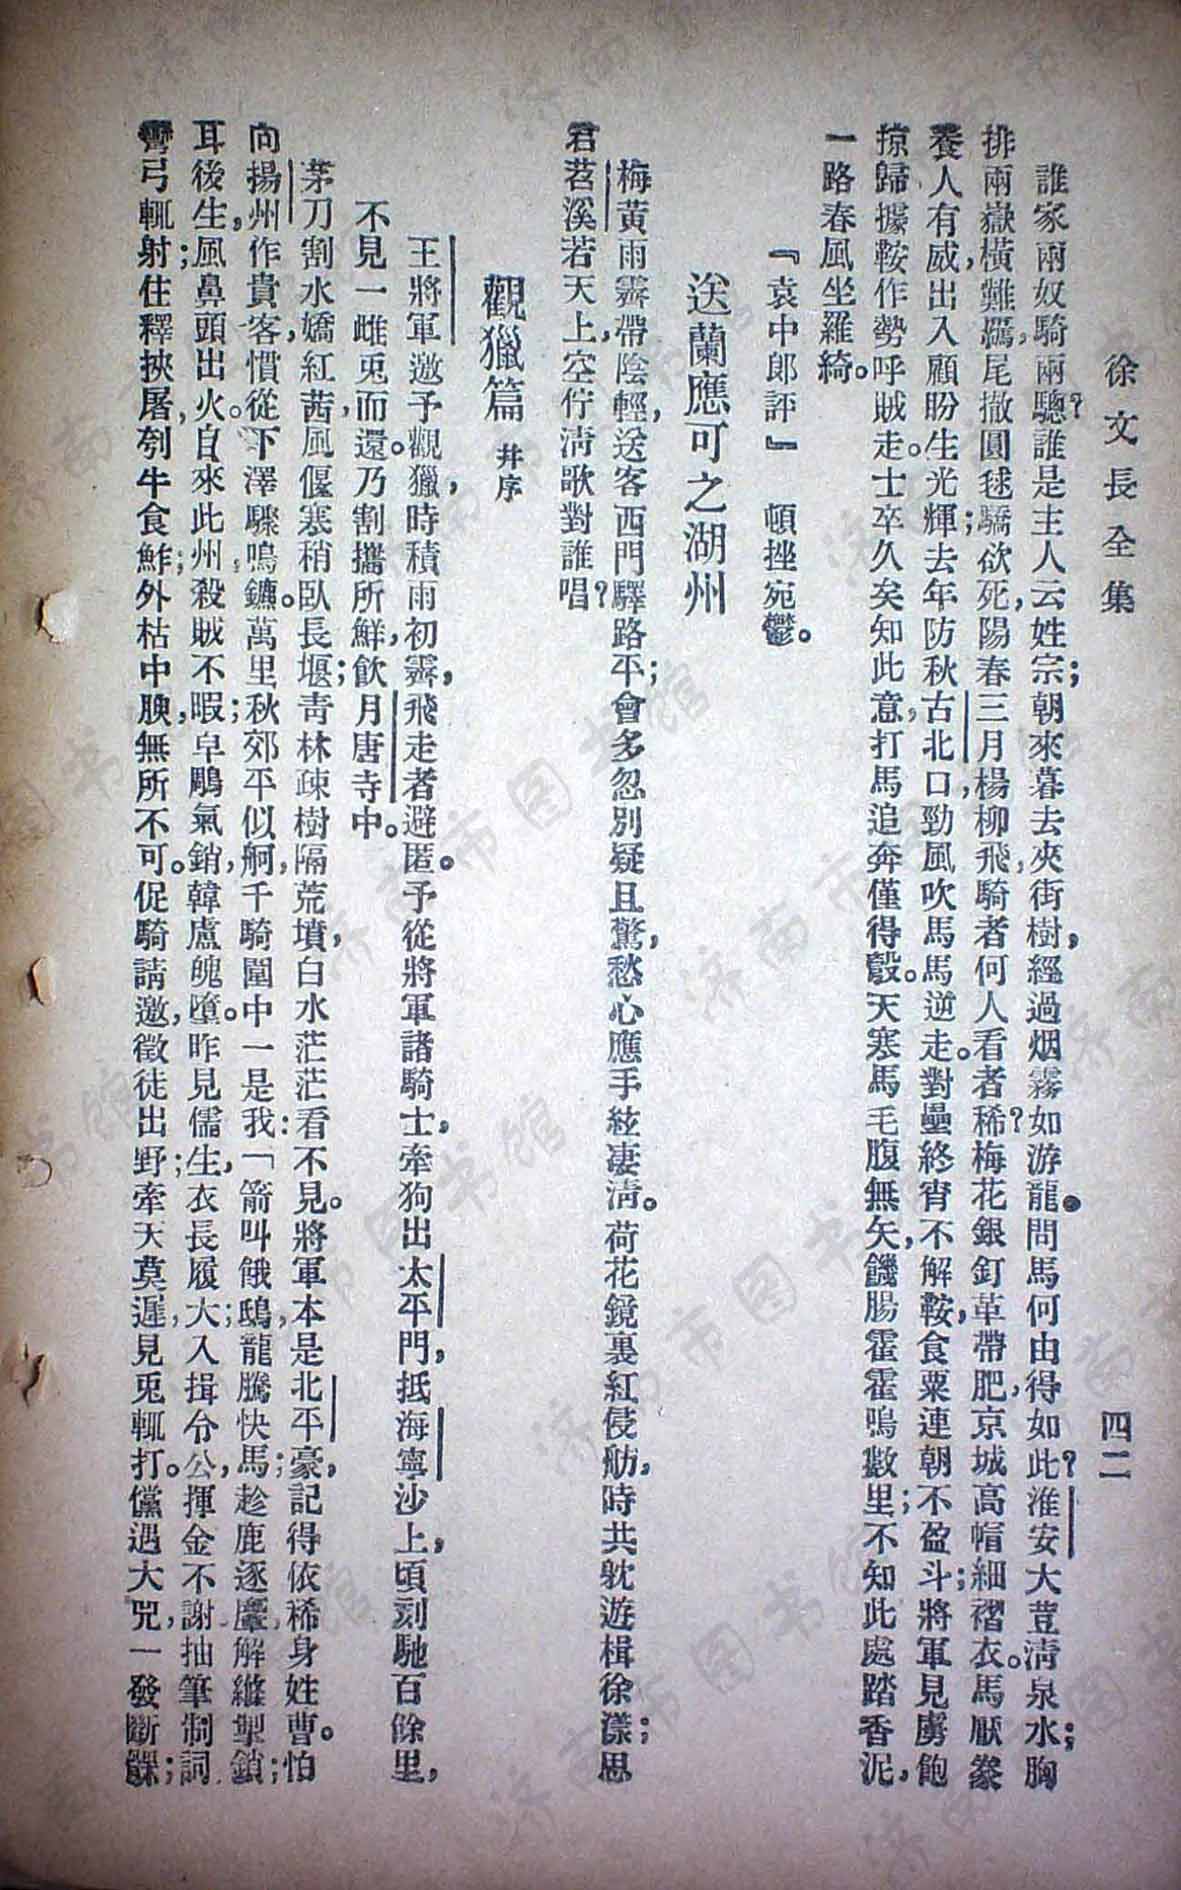 徐文長全集　四二
誰家兩奴騎兩驄？誰是主人云姓宗；朝來暮去夾街樹，經過烟霧如游龍。問馬何由得如此？淮安大荳淸泉水；胸
排兩嶽橫難羈，尾撒圓毬驕欲死，陽春三月楊柳飛，騎者何人看者稀？梅花銀釘革帶肥，京城高帽細褶衣。馬厭豢
養人有威，出入顧盼生光輝；去年防秋古北口，勁風吹馬馬逆走。對壘終宵不解鞍，食粟連朝不盈斗；將軍見虜飽
掠歸，據鞍作勢呼賊走。士卒久矣知此意，打馬追奔僅得彀。天寒馬毛腹無矢，饑腸霍霍鳴數里；不知此處踏香泥，
一路春風坐羅綺。
『袁中郎評』　頓挫宛鬱。
送蘭應可之湖州
梅黃雨霽帶陰輕，送客西門驛路平；會多忽別疑且驚，愁心應手絃凄淸。荷花鏡裏紅侵舫，時共躭遊楫徐漾；思
君苕溪若天上，空佇淸歌對誰唱？
觀獵篇　幷序
王將軍邀予觀獵，時積雨初霽，飛走者避匿。予從將軍諸騎士，牽狗出太平門，抵海寧沙上，頃刻馳百餘里，
不見一雌兎而還。乃割攜所鮮，飮月唐寺中。
茅刀割水嬌紅茜，風偃寒稍臥長堰；靑林疎樹隔荒墳，白水茫茫看不見。將軍本是北平豪，記得依稀身姓曹。怕
向揚州作貴客，慣從下澤驟鳴鑣。萬里秋郊平似舸，千騎圍中一是我：「箭叫餓鴟，龍騰快馬；趁鹿逐麞，解縧掣鎖；
耳後生風，鼻頭出火。自來此州，殺賊不暇；皁鵰氣銷，韓盧魄墮。昨見儒生，衣長履大；入揖分公，揮金不謝，抽筆制詞；
彎弓輒射，住釋挾屠，刳牛食鮓；外枯中腴，無所不可。促騎請邀，徵徒出野；牽天莫遲，見兎輒打。儻遇大兕，一發斷髁；